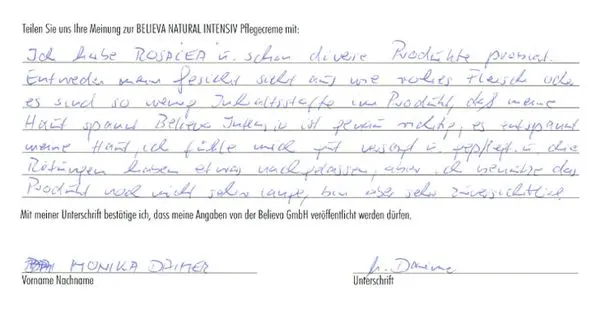 Teilen Sie uns Ihre Meinung zur BELIEVA NATURAL INTENSIV Pflegecreme mit:
Ich habe ROSACEA u. schon divere Produkte probiert.
Entweder mein Gesicht sieht aus wie rohes Fleisch oder
es sind so wenig Inhaltsstoffe im Produkt, daß meine
Haut spannt Believa Intensiv ist genau richtig, es entspannt
meine Haut, ich fühle mich gut versorgt u. gepflegt. u die
Rötungen haben etwas nachgelassen, aber ich benütze das
Produkt noch nicht sehr lange, bin aber sehr zuversichtlich.
Mit meiner Unterschrift bestätige ich, dass meine Angaben von der Believa GmbH veröffentlicht werden dürfen.
MONIKA
Vorname Nachname
Unterschrift